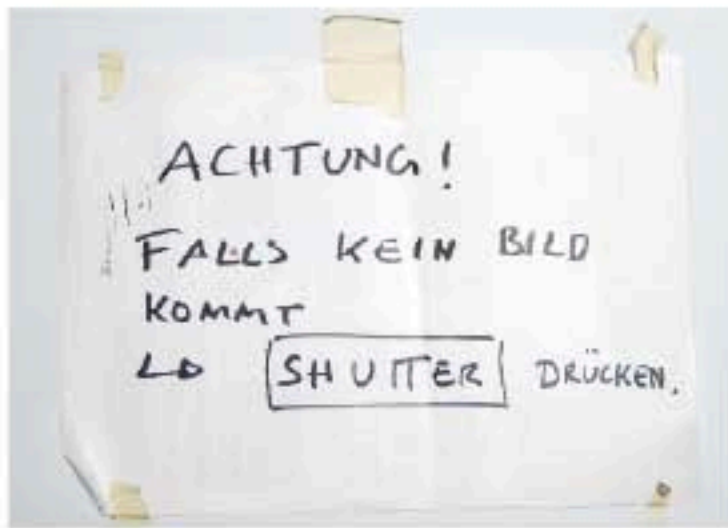 ACHTUNG!
FALLS KEIN BILD
KOMMT
↳ SHUTTER DRÜCKEN.